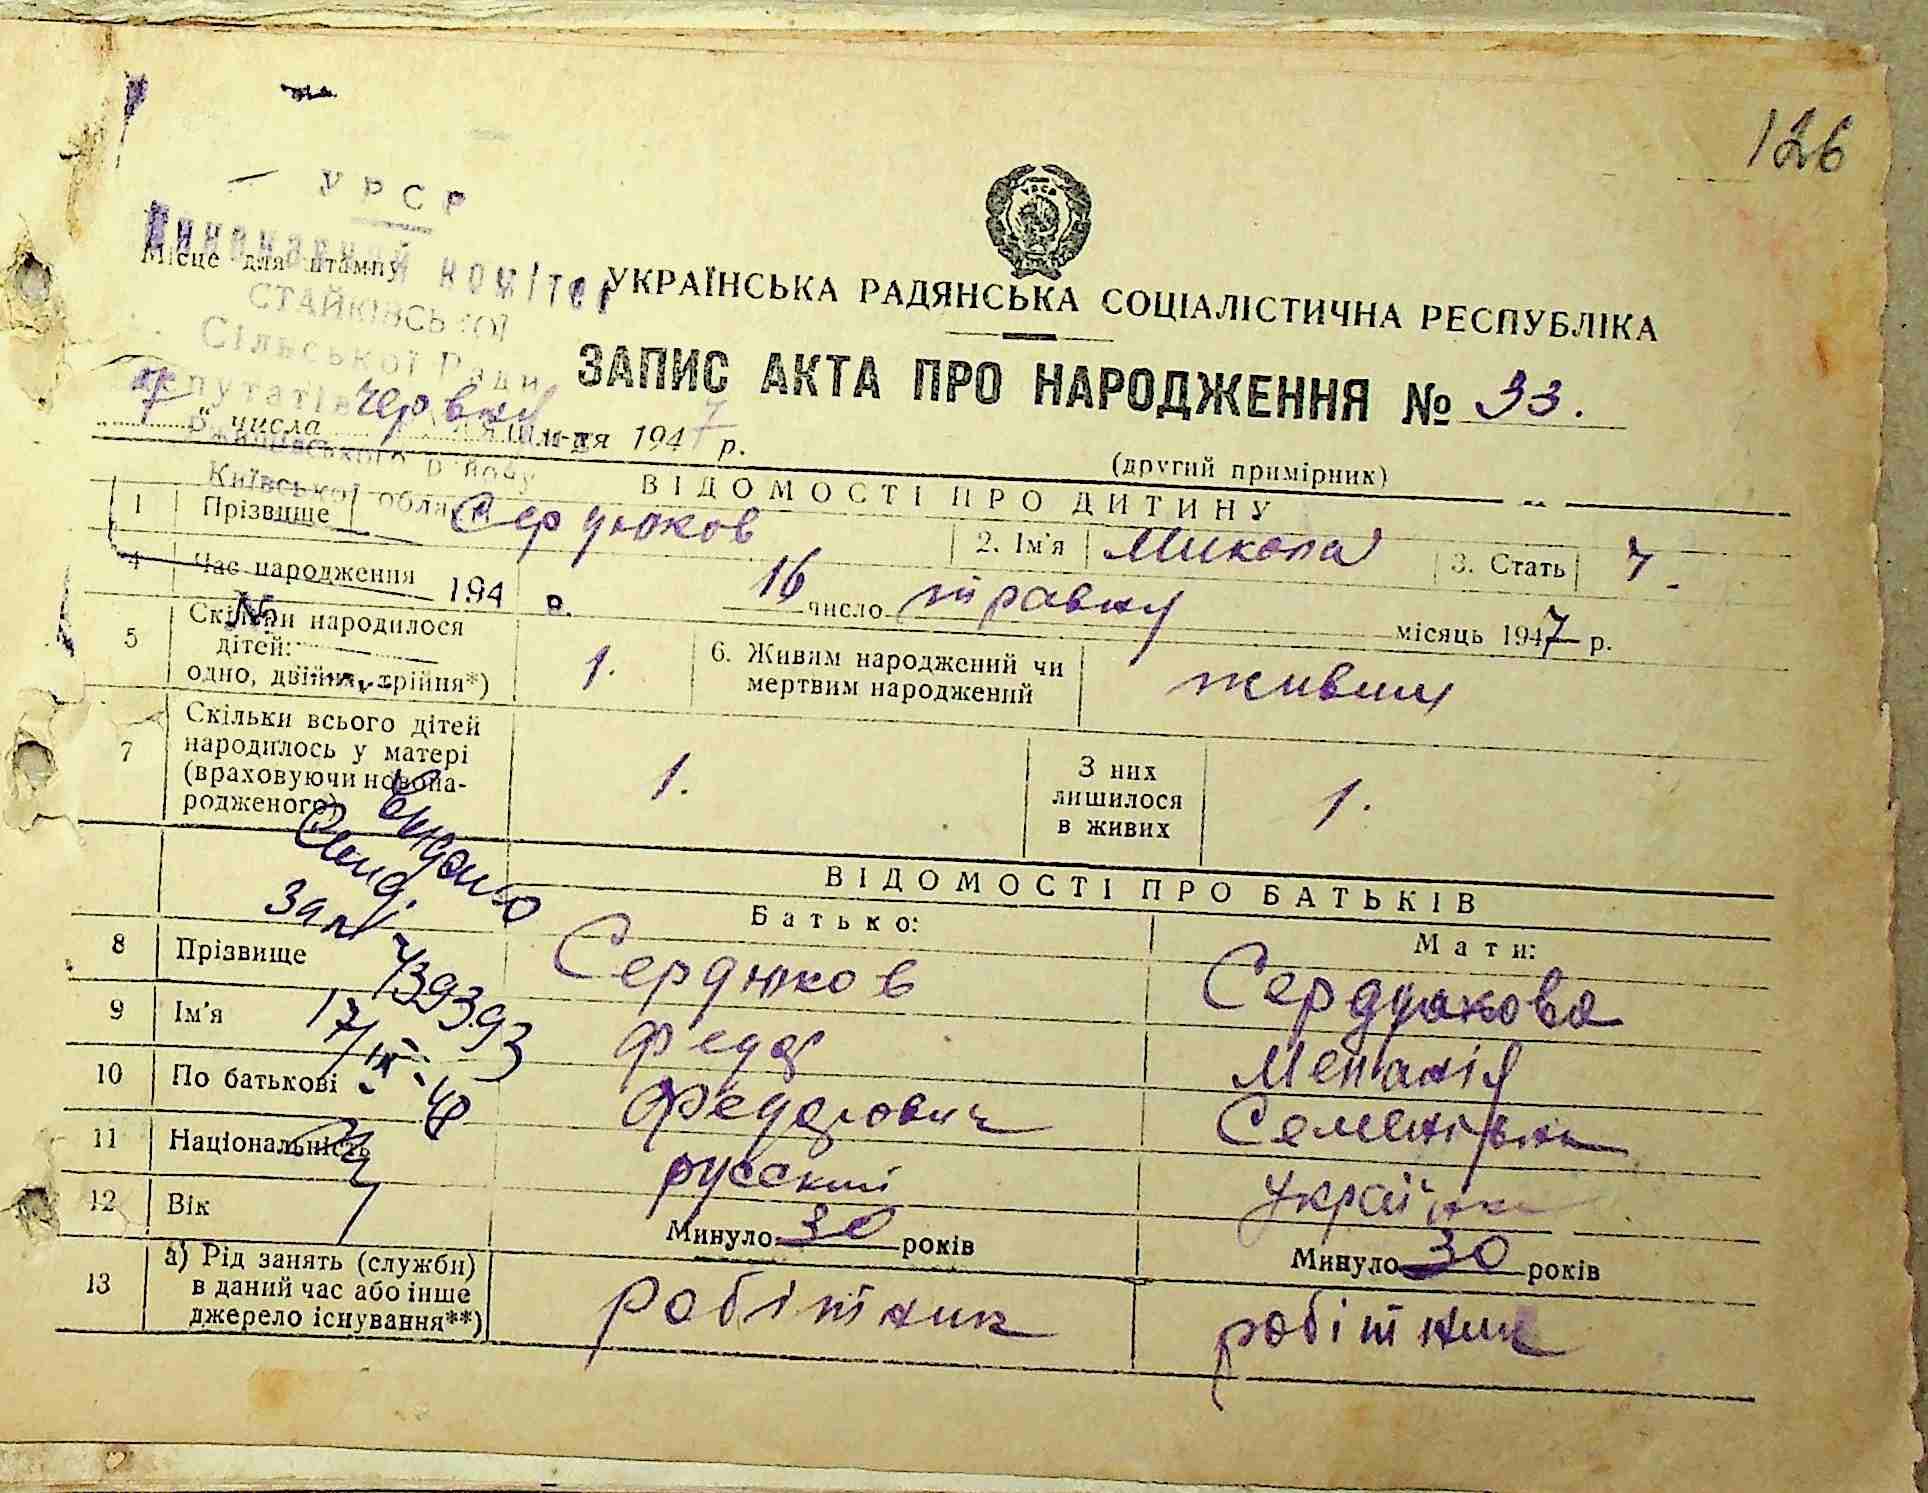 126
УРСР
Виконавчий комітет
Місце для штампу
СТАЙКІВСЬКОЇ
Сільської Ради
депутатів
Київської області
УКРАЇНСЬКА РАДЯНСЬКА СОЦІАЛІСТИЧНА РЕСПУБЛІКА
ЗАПИС АКТА ПРО НАРОДЖЕННЯ № 33.
"7" числа червня м-ця 1947 р.
(другий примірник)
ВІДОМОСТІ ПРО ДИТИНУ
1 Прізвище Сердюков 2. Ім'я Микола 3. Стать ч.
4 Час народження 16 число травня місяць 1947 р.
194 р.
№
5 Скільки народилося дітей:
одно, двійня, трійня*) 1. 6. Живим народжений чи мертвим народжений живим
7 Скільки всього дітей народилось у матері (враховуючи новонародженого) 1. З них лишилося в живих 1.
Видано
ВІДОМОСТІ ПРО БАТЬКІВ
Батько: Мати:
8 Прізвище Сердюков Сердюкова
439393
9 Ім'я Федор Меланія
17/IX-48
10 По батькові Федорович Семенівна
11 Національність русский українка
12 Вік Минуло 30 років Минуло 30 років
13 а) Рід занять (служби) в даний час або інше джерело існування**) робітник робітник